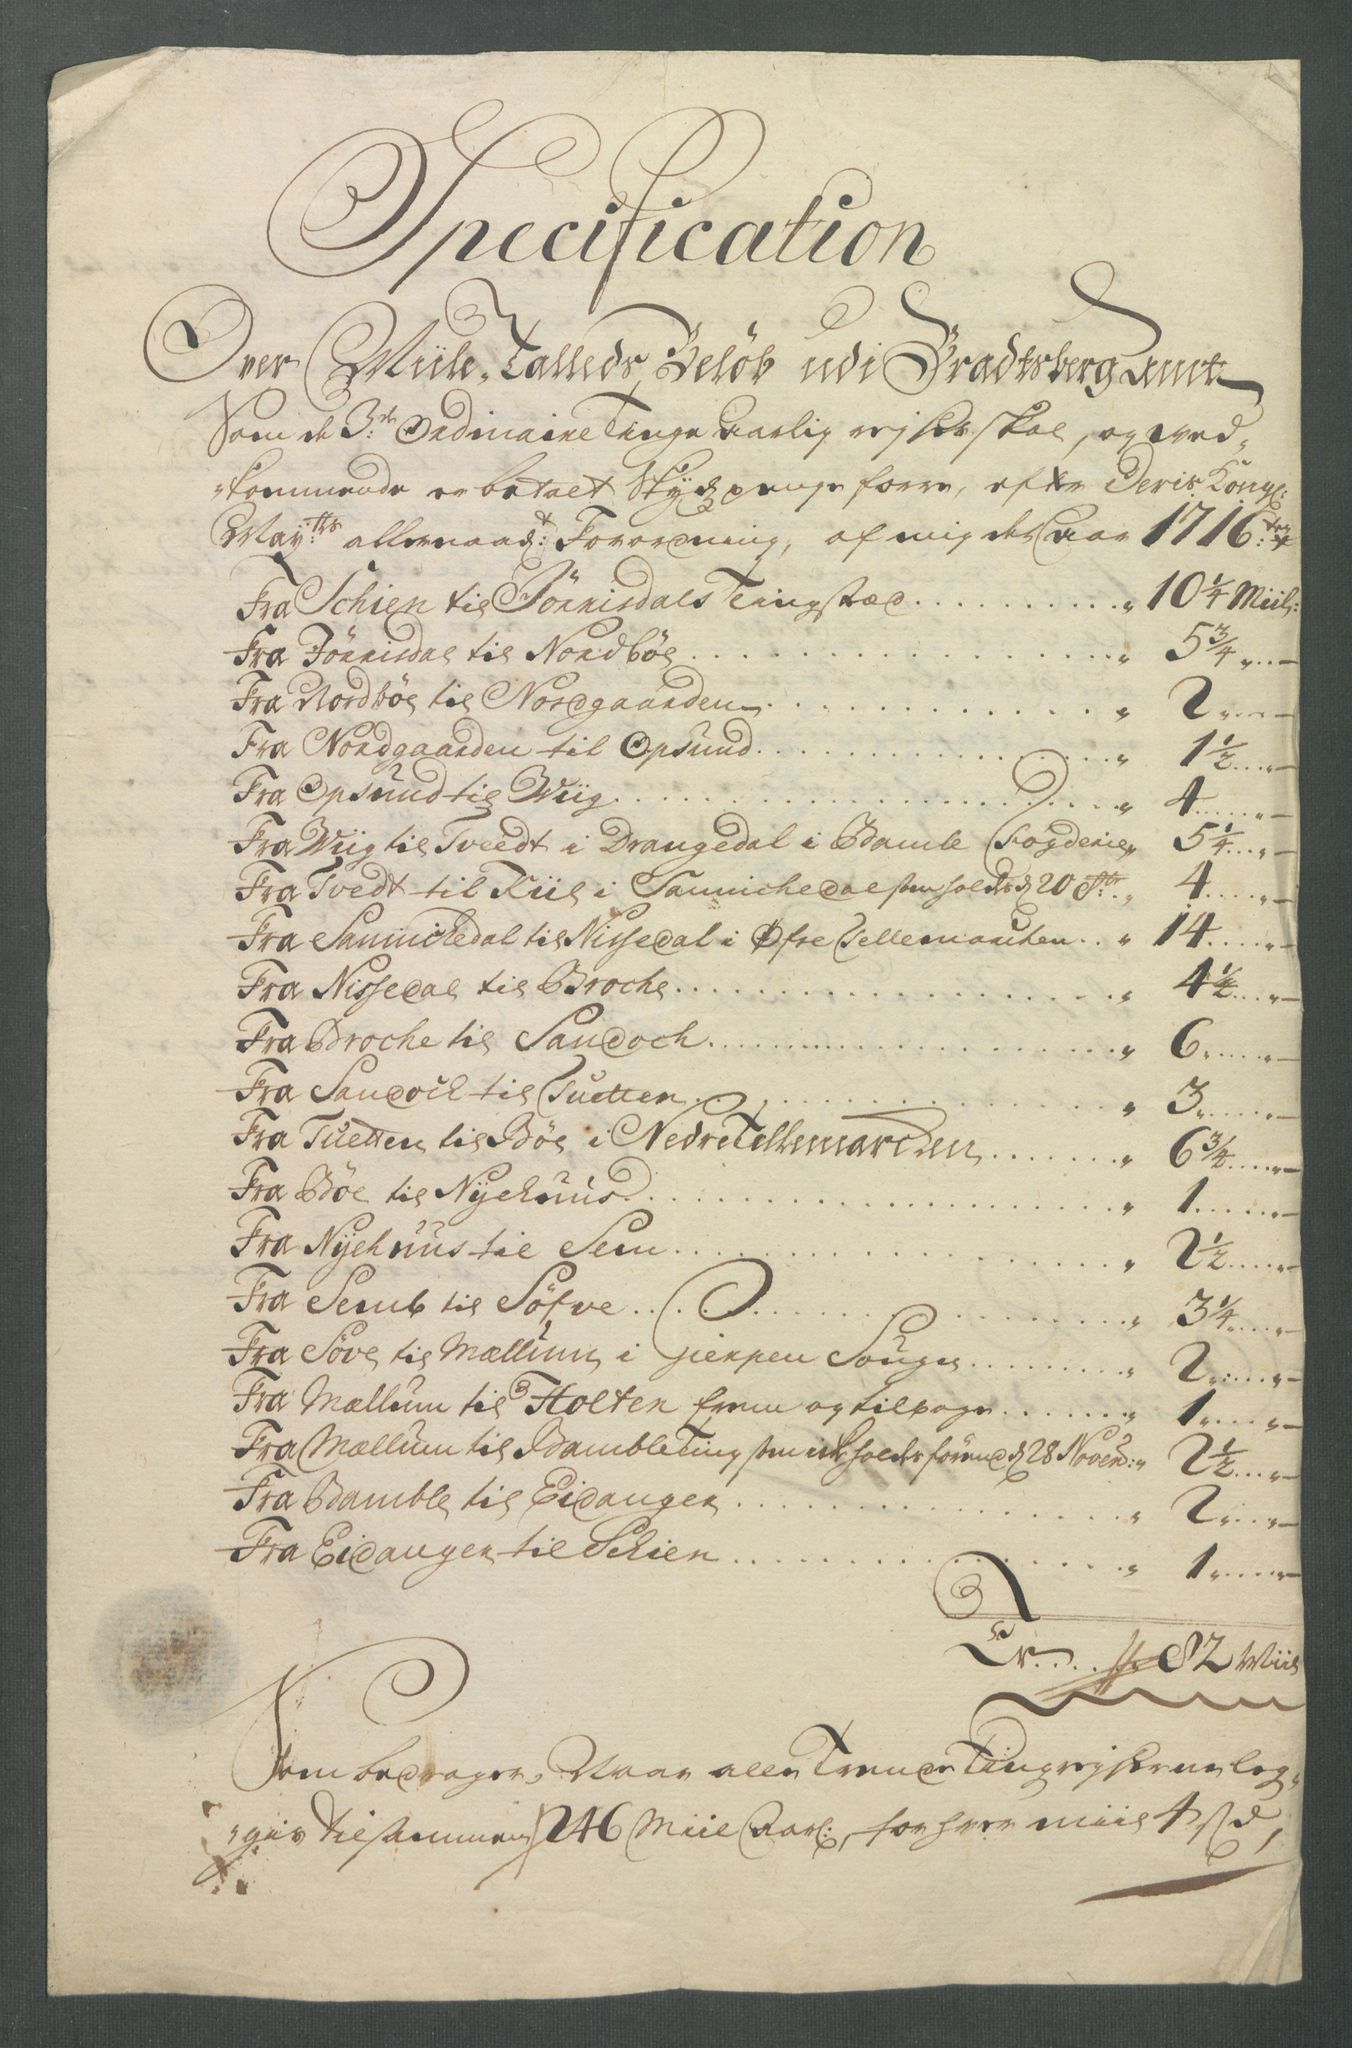 Specification
Over Miile Talleds Beløb udi Bradtsberg Amt
Som de 3de Ordinaire Tinge Aarlig rejses skal, og ved-
kommende er betalt Skydspenge forre, efter Deris Kongl:
May:tts allernaad: Forordning, af mig det Aar 1716:
Fra Schien til Jönnisdals Tingstæd .......... 10 1/4 Miil:
Fra Jönnisdal til Nordböe .......... 5 3/4 „ —
Fra Nordböe til Nordgaarden .......... 2 „ —
Fra Nordgaarden til Opsund .......... 1 1/2 „ —
Fra Opsund til Wiig .......... 4 „ —
Fra Wiig til Tvedt i Drangedal i Bamle Fogderie 5 1/4 „ —
Fra Tvedt til Kiil i Sannichedal som holdes d 20 8br: 4 „ —
Fra Sannichedal til Nissedal i Øfre Tellemarchen .. 14 „ —
Fra Nissedal til Broche .......... 4 1/2 „ —
Fra Broche til Sandoch .......... 6 „ —
Fra Sandoch til Tuetten .......... 3 „ —
Fra Tuetten til Böe i Nedre Tellemarchen .......... 6 3/4 „ —
Fra Böe til Nyehuus .......... 1 „ —
Fra Nyehuus til Sem .......... 2 1/2 „ —
Fra Semb til Söfve .......... 3 1/4 „ —
Fra Söve til Mællum i Gierpen Sougn .......... 2 „ —
Fra Mællum til Holten frem og tilbage .......... 1 „ —
Fra Mællum til Bamble Ting som ich holdes förend d 28 Novemb: 2 1/2 „ —
Fra Bamble til Eidanger .......... 2 „ —
Fra Eidanger til Schien .......... 1 „ —
Er .... 82 Miil
Som bedrager, Naar alle Trende Tingrejserne leg-
gis tilsammen 246 Miil Aarl:, for hver miil 4 s d,